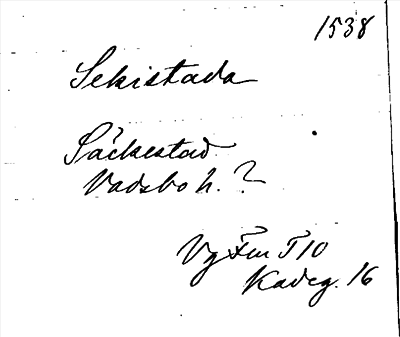 1538
Sekistada
Säckestad
Vadsbo h. ?
Vg Fm T 10
Kadeg. 16